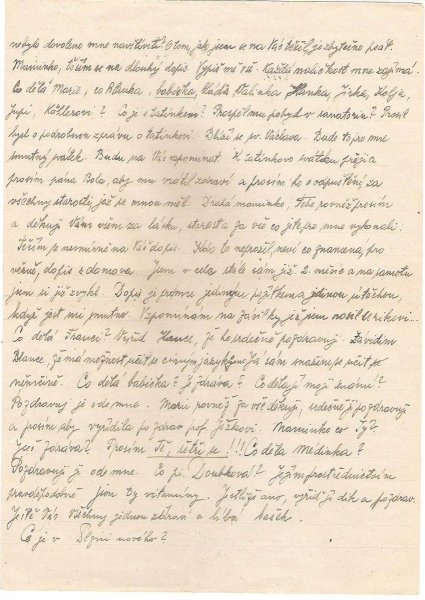 nebylo dovoleno mne navštíviti? O tom, jak jsem se na Vás těšil, je zbytečno psát.
Maminko, těším se na dlouhý dopis. Vypiš mě vše. Každá maličkost mne zajímá.
Co dělá Marie, co Blanka, babička, Láďa, Mařinka, Hanka, Jirka, Kolja,
Jupi, Köhlerovi? Co je s tatínkem? Prospěl mu pobyt v sanatoriu? Prosil
bych o podrobnou zprávu o tatínkovi. Blíží se sv. Václava. Bude to pro mne
smutný svátek. Budu na Vás vzpomínat. K tatínkovu svátku přeji a
prosím pána Boha, aby mu vrátil zdraví a prosím ho o odpuštění za
všechny starosti, jež se mnou měl. Drahá maminko, Tebe rovněž prosím
a děkuji Vám všem za lásku, starost a za vše co jste pro mne vykonali.
Těším se nesmírně na Váš dopis. Kdo to neprožil, neví co znamená, pro
vězně, dopis z domova. Jsem v cele stále sám již 2 měsíce a na samotu
jsem si již zvykl. Dopis je pro mne jediným požitkem a jedinou útěchou,
když jest mi smutno. Vzpomínám na zásilky jež jsem nosil
Co dělá Franci? Vyřiď Hance, že ho srdečně pozdravuji. Závidím
Blance, že má možnost učit se cizím jazykům. Já sám snažím se učit se
němčině. Co dělá babička? Je zdráva? Co dělají moji známí?
Pozdravuj je ode mne. Marii rovněž za vše děkuji, srdečně ji pozdravuji
a prosím aby vyřídila pozdrav prof. Ježkovi. Maminko co Ty?
Jsi zdráva? Prosím Tě, šetři se!!! Co dělá Medinka?
Pozdravuj ji ode mne. Co pí. Doubková? Jejím prostřednictvím
pravděpodobně jsou ty vitaminy. Jestliže ano, vyřiď jí dík a pozdrav.
Ještě Vás všechny jednou zdraví a líbá
Co je v Plzni nového?